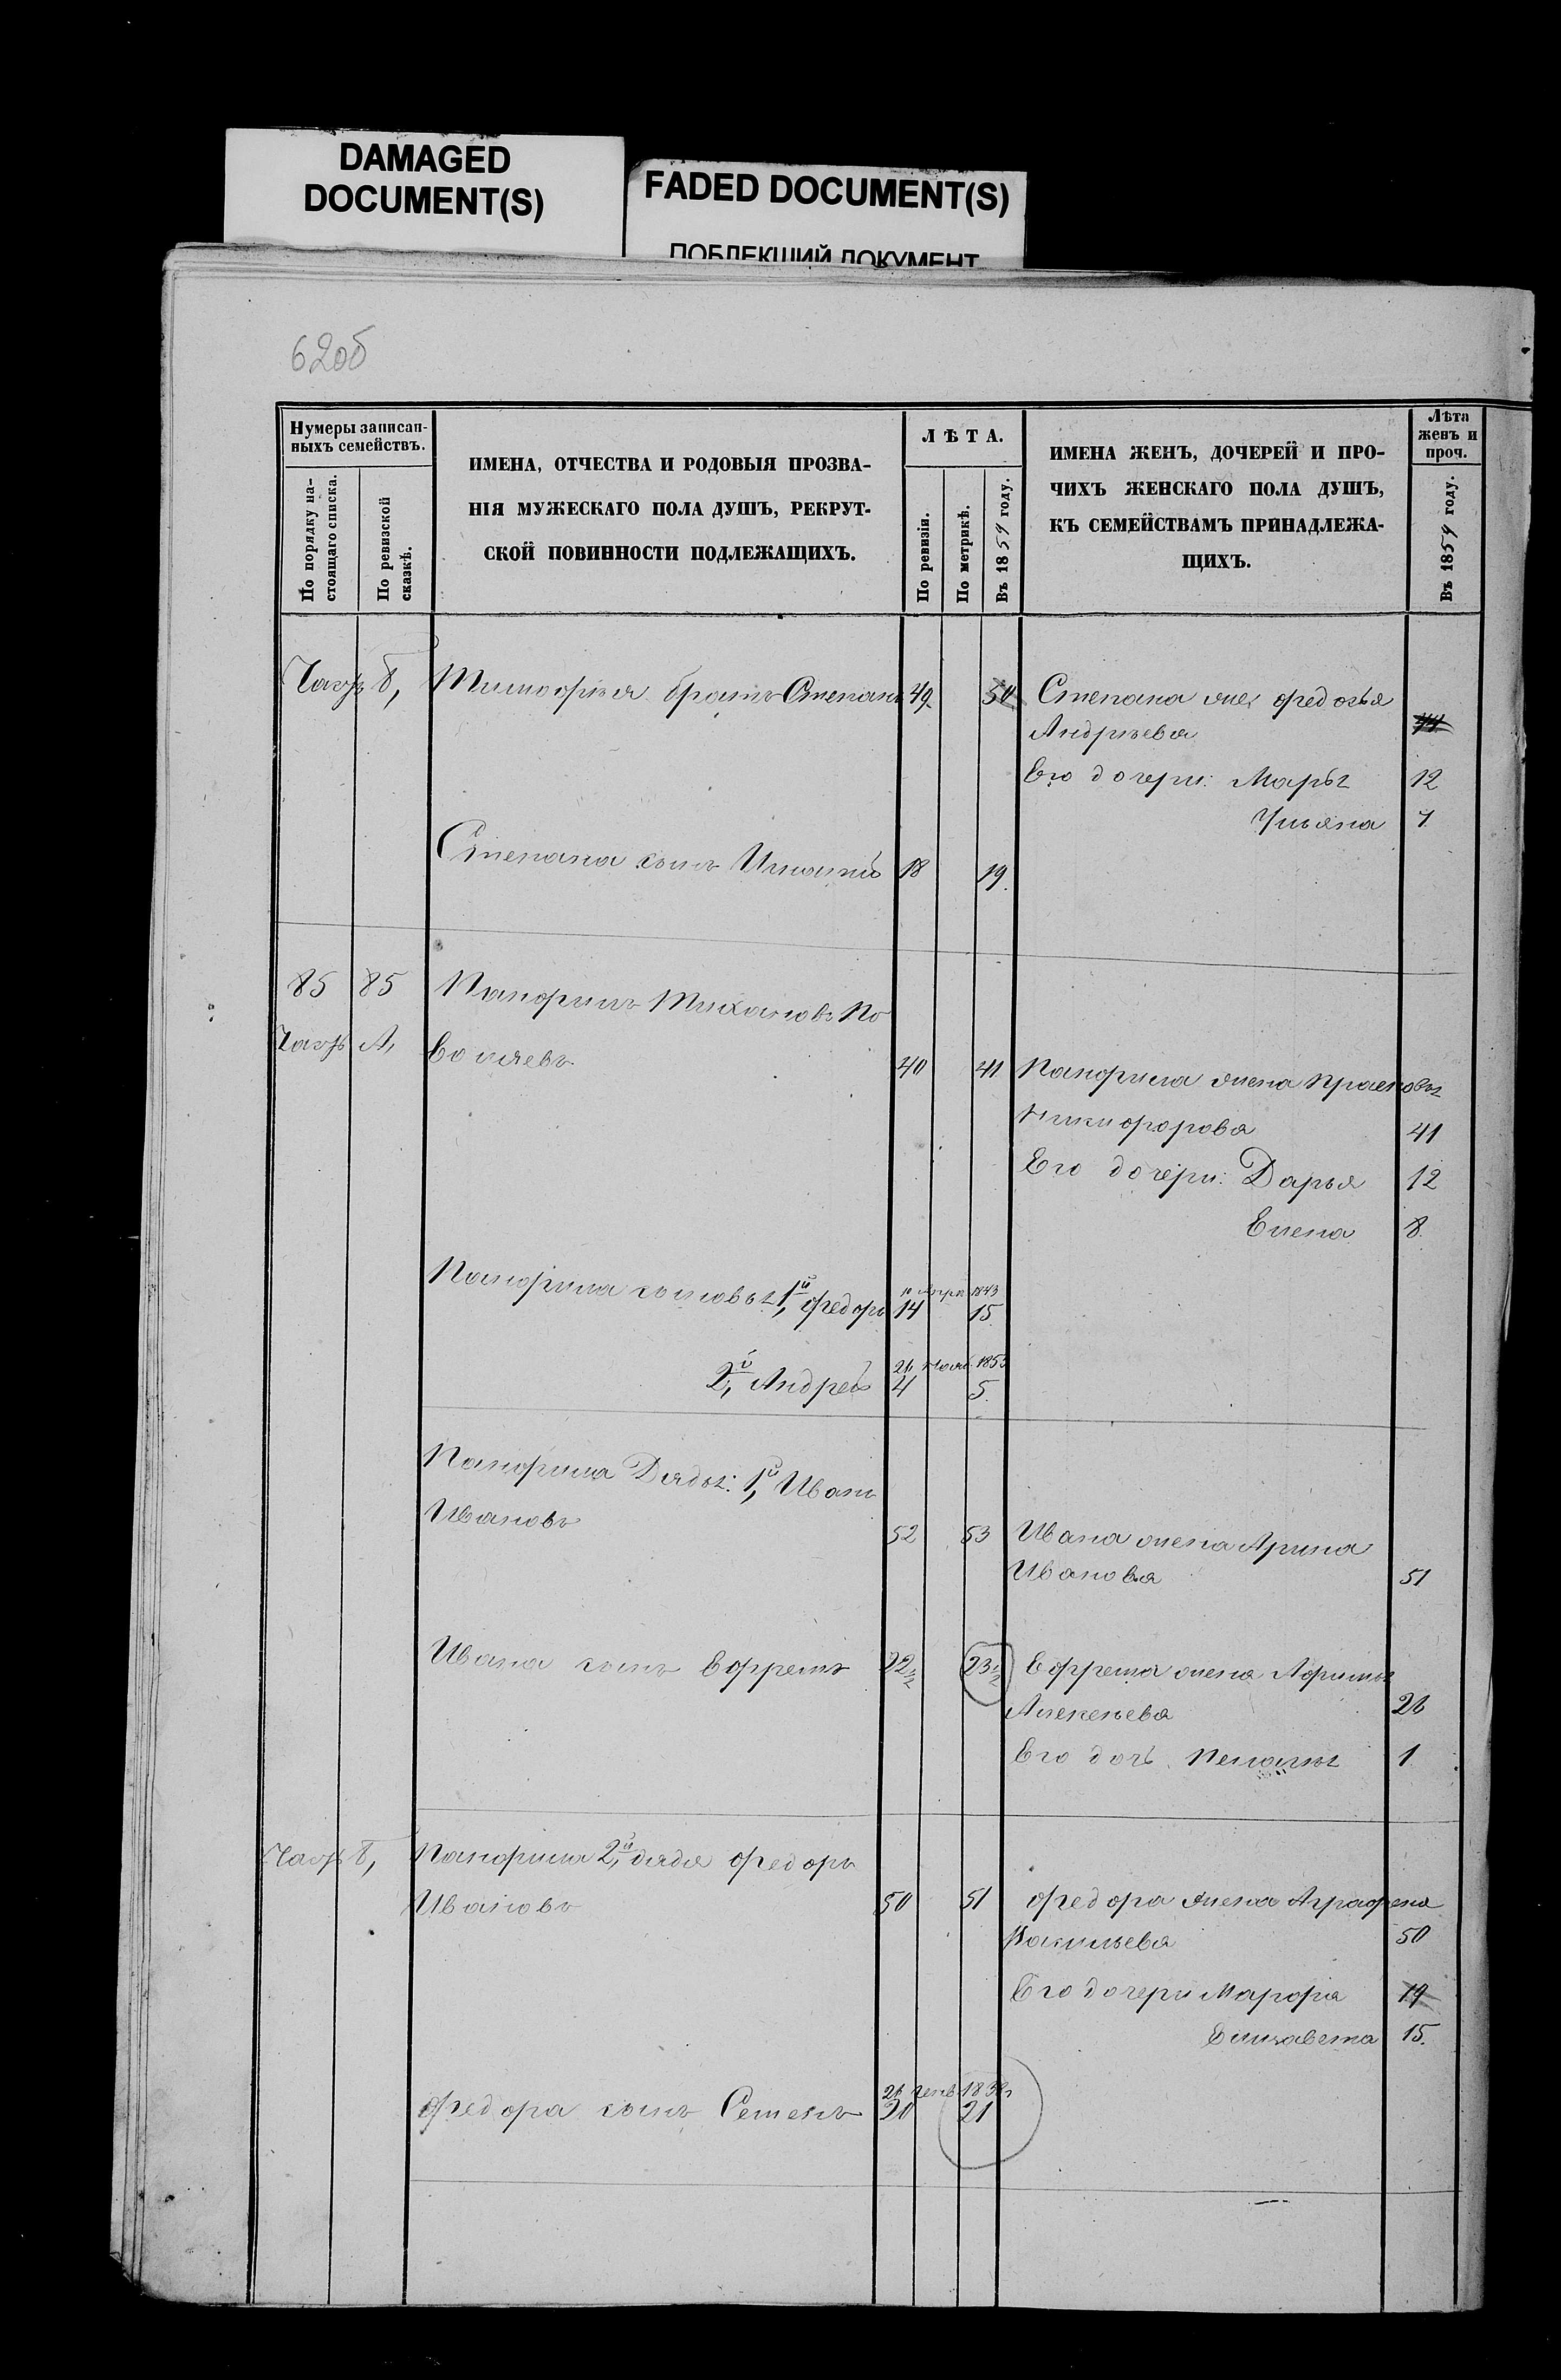 DAMAGED
DOCUMENT(S)
FADED DOCUMENT(S)
ПОБЛЕКШИЙ ДОКУМЕНТ
62об
Нумеры записан-
ныхъ семействъ.
По порядку на-
стоящаго списка.
По ревизской
сказкѣ.
ИМЕНА, ОТЧЕСТВА И РОДОВЫЯ ПРОЗВА-
НІЯ МУЖЕСКАГО ПОЛА ДУШЪ, РЕКРУТ-
СКОЙ ПОВИННОСТИ ПОДЛЕЖАЩИХЪ.
ЛѢТА.
По ревизіи.
По метрикѣ.
Въ 1859 году.
ИМЕНА ЖЕНЪ, ДОЧЕРЕЙ И ПРО-
ЧИХЪ ЖЕНСКАГО ПОЛА ДУШЪ,
КЪ СЕМЕЙСТВАМЪ ПРИНАДЛЕЖА-
ЩИХЪ.
Лѣта
женъ и
проч.
Въ 1859 году.
б, Тимофѣя братъ Степанъ 49 50 Степана жена Федосья
Андрѣева
Его дочери: Марья 12
Ульяна
Степана сынъ Игнатій 18 19.
85 85 Панфилъ Михайловъ
А, 40 41 Панфила жена Прасковья
Никифорова 41
Его дочери: Дарья 12
Елена 8.
Панфила сыновья 1й, Федоръ 14 15. 1843
2й, Андрей 4 5. 21 Нояб. 1853
Панфила Дядья: 1й, Иванъ
Ивановъ 52 53 Ивана жена Арина
Иванова 51
Ивана сынъ Ефремъ 22½ 23½ Ефрема жена Афимья
Алексѣева 26
Его дочь Пелагея 1
б, Панфила 2й, дядя Федоръ
Ивановъ 50 51 Федора жена Аграфена
Васильева 50
Его дочери Марфа 19
Елизавета 15.
Федора сынъ Семенъ 20 21